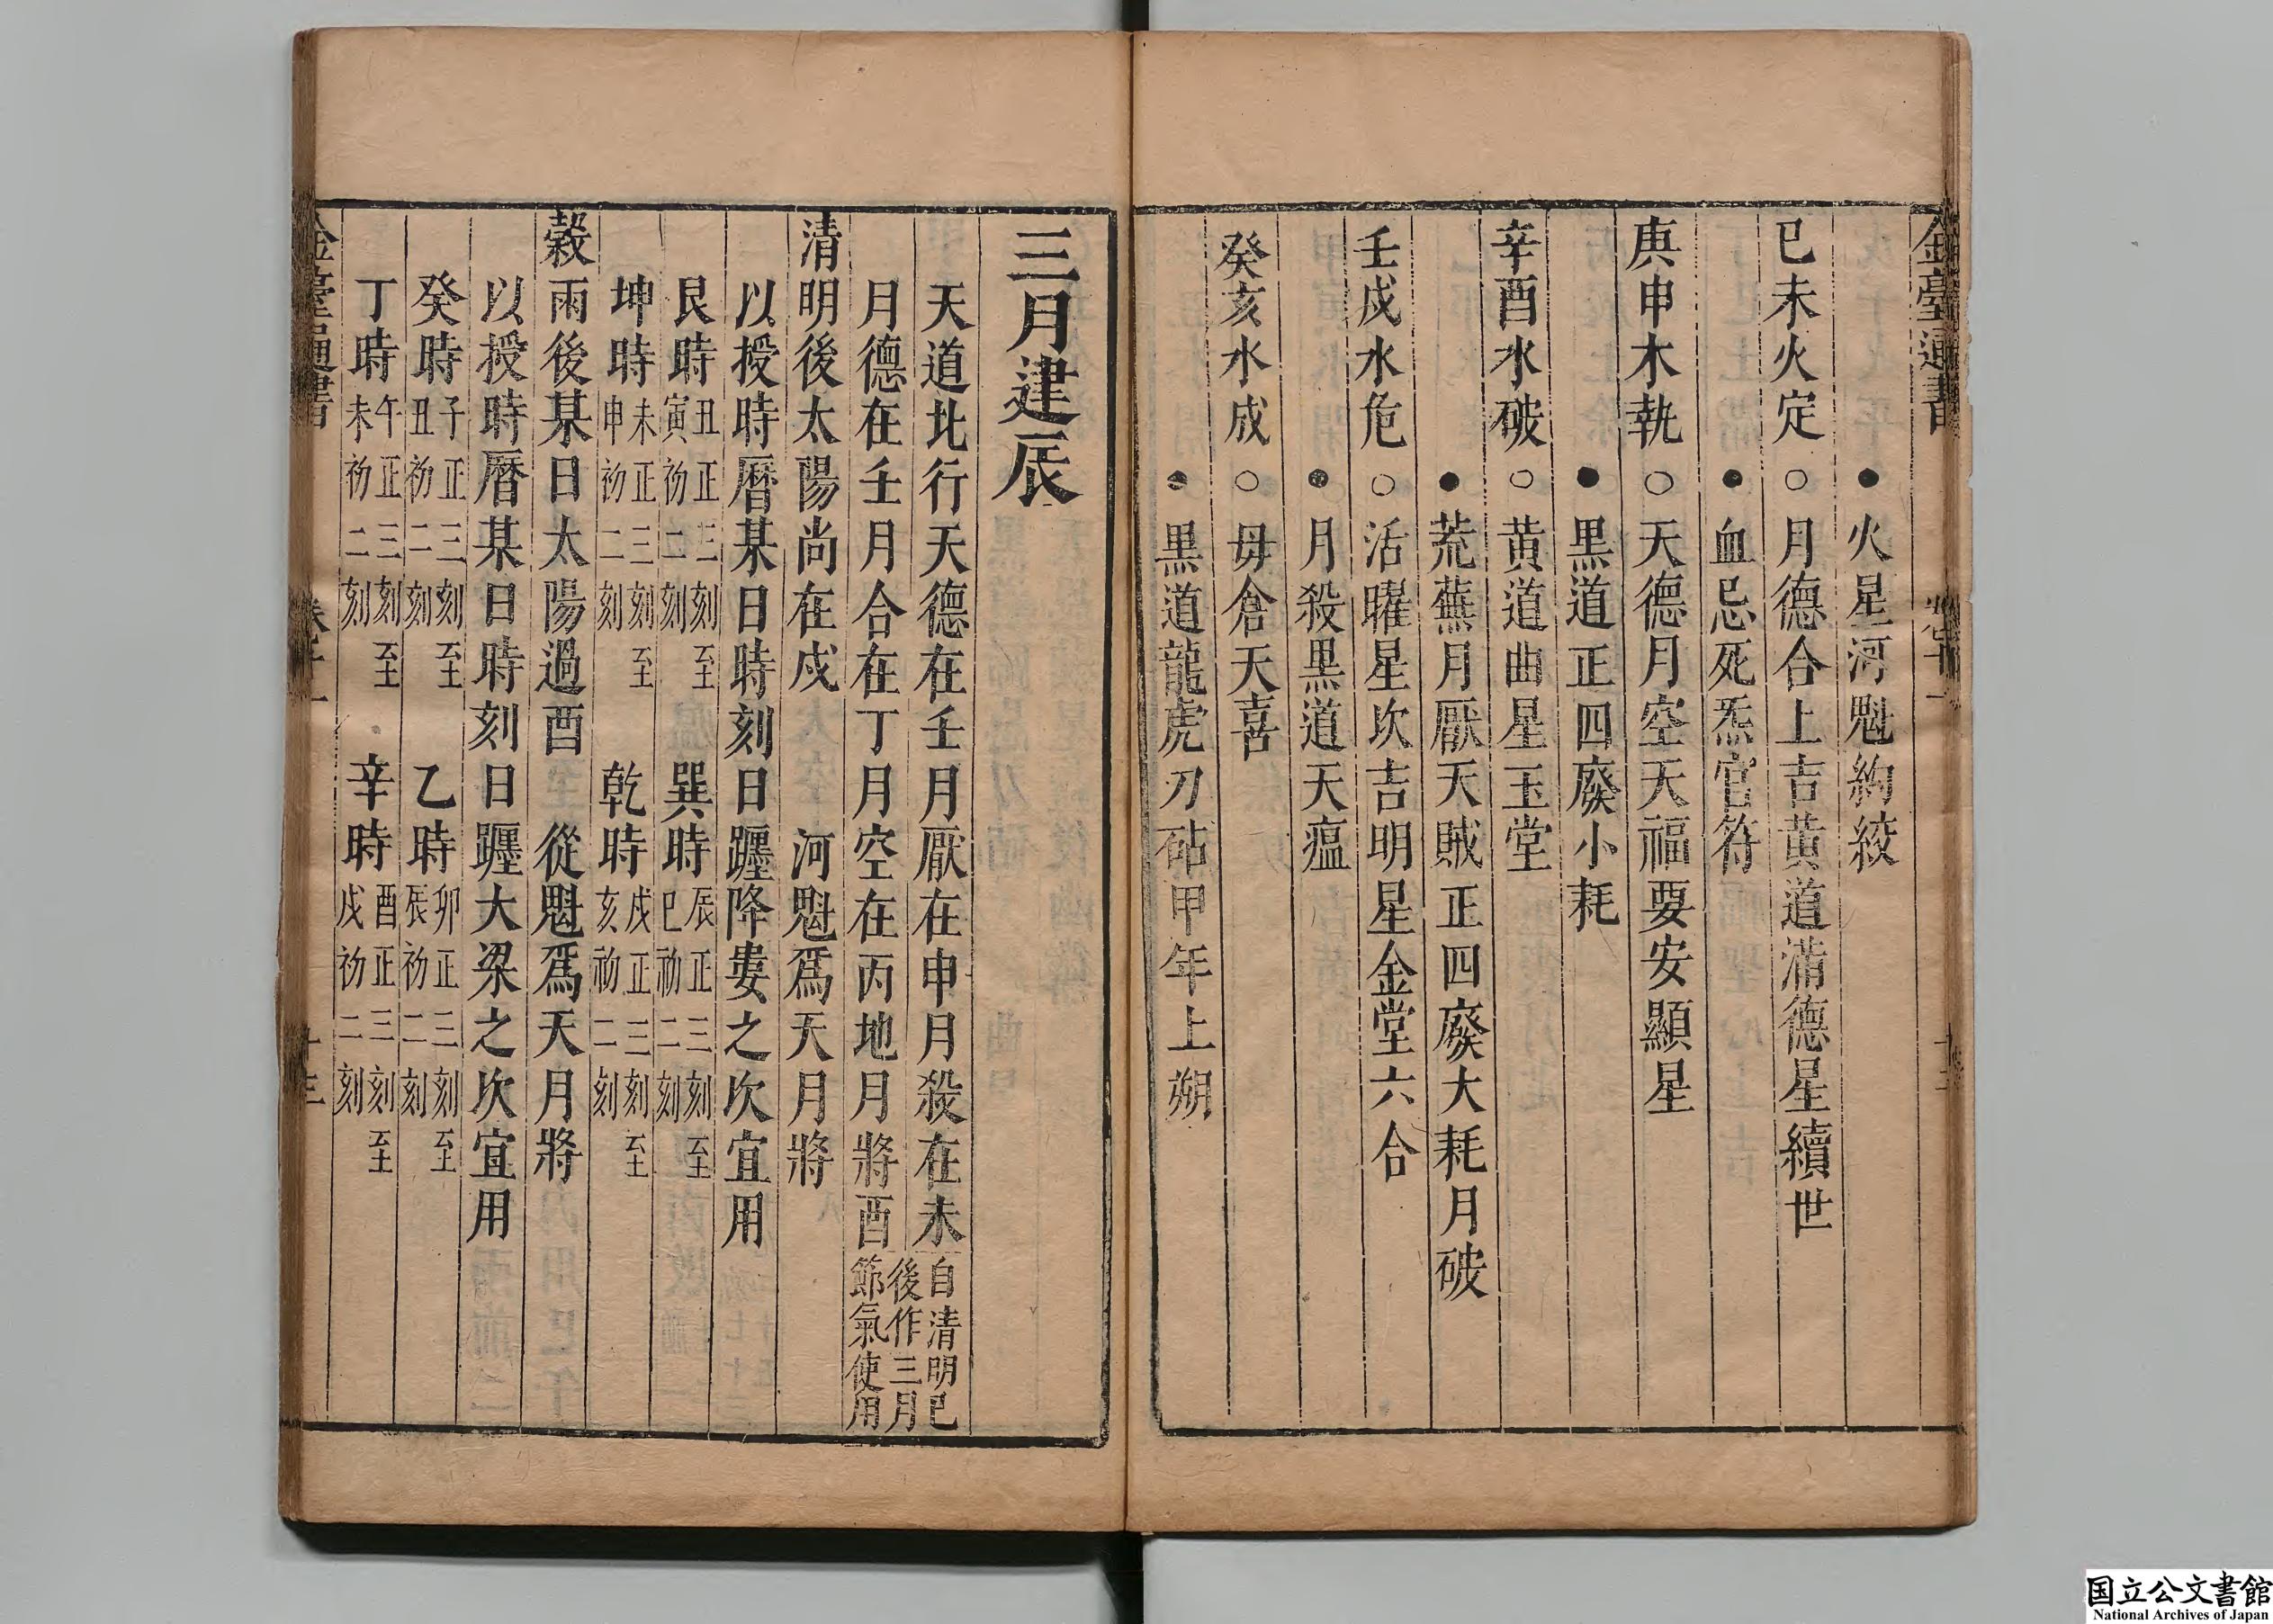 金臺通書
●火星河魁絇絞
己未火定○月德合上吉黄道滿德星續世
●血忌死炁官符
庚申木執○天德月空天福要安顯星
●黒道正四廢小耗
辛酉水破○黄道曲星玉堂
●荒蕪月厭天賊正四廢大耗月破
壬戌水危○活曜星次吉明星金堂六合
●月殺黒道天瘟
癸亥水成○母倉天喜
●黒道龍虎刀砧甲年上朔
三月建辰
天道北行天德在壬月厭在申月殺在未
月德在壬月合在丁月空在丙地月將酉
自清明已
後作三月
節氣使用
清明後太陽尚在戌　河魁爲天月將
以授時曆某日時刻日躔降婁之次宜用
艮時丑正三刻至寅初二刻　巽時辰正三刻至巳初二刻
坤時未正三刻至申初二刻　乾時戌正三刻至亥初二刻
穀雨後某日太陽過酉　從魁爲天月將
以授時曆某日時刻日躔大梁之次宜用
癸時子正三刻至丑初二刻　乙時卯正三刻至辰初二刻
丁時午正三刻至未初二刻　辛時酉正三刻至戌初二刻
金臺通書
国立公文書館
National Archives of Japan